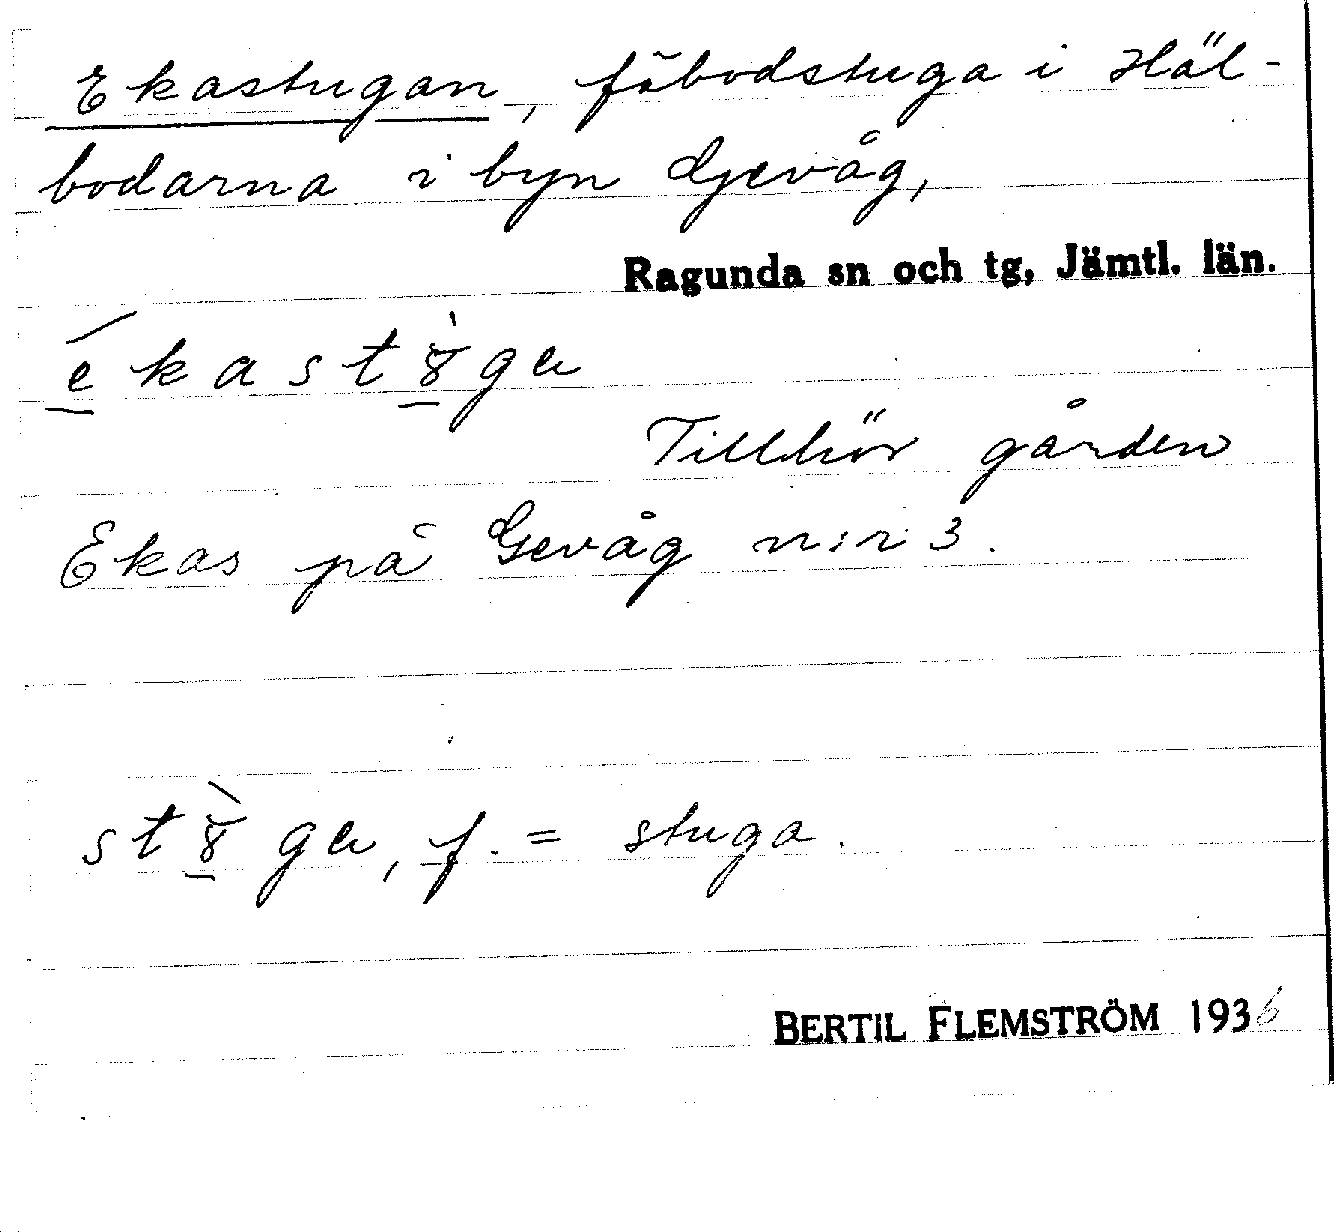 Ekastugan, fäbodstuga i Häl-
bodarna i byn Gevåg,
Ragunda sn och tg, Jämtl. län.
é̱kastȣ̱̀ga
Tillhör gården
Ekas på Gevåg n:r 3.
stȣ̱̀ga, f. = stuga.
BERTIL FLEMSTRÖM 1936